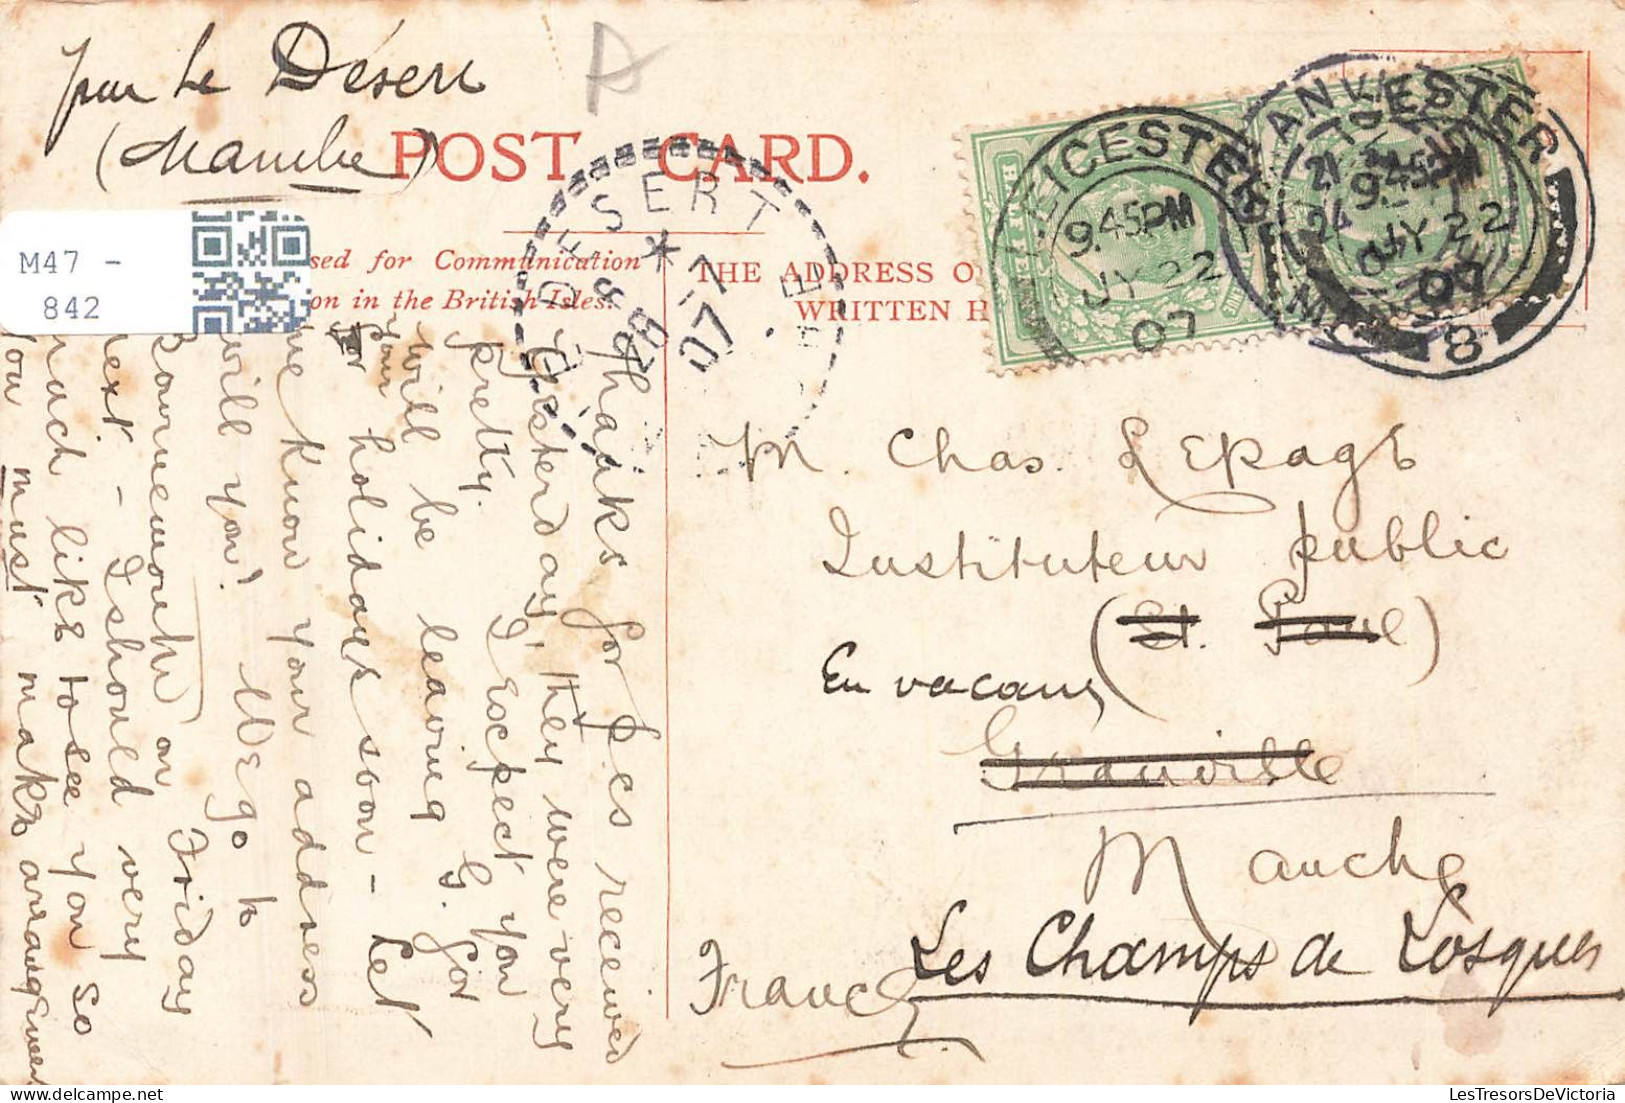 par Le Désert
(Manche)
POST CARD.
M47 -
842
sed for Communication
on in the British Isles.
THE ADDRESS O
WRITTEN H
LE DESERT
28 -7
07
LEICESTER
9.45PM
JY 22
07
LEICESTER
9.45PM
JY 22
07
8
M. Chas. LEpage
Instituteur public
(St. Paul)
En vacances
Granville
Manche
Les Champs de Losques
France
Thanks for pcs received
yesterday, they were very
pretty. I Expect you
will be leaving G. for
your holidays soon - Let
me know your address
will you! We go to
Bournemouth on Friday
next - I should very
much like to see you so
you must make arrangemen
LesTresorsDeVictoria